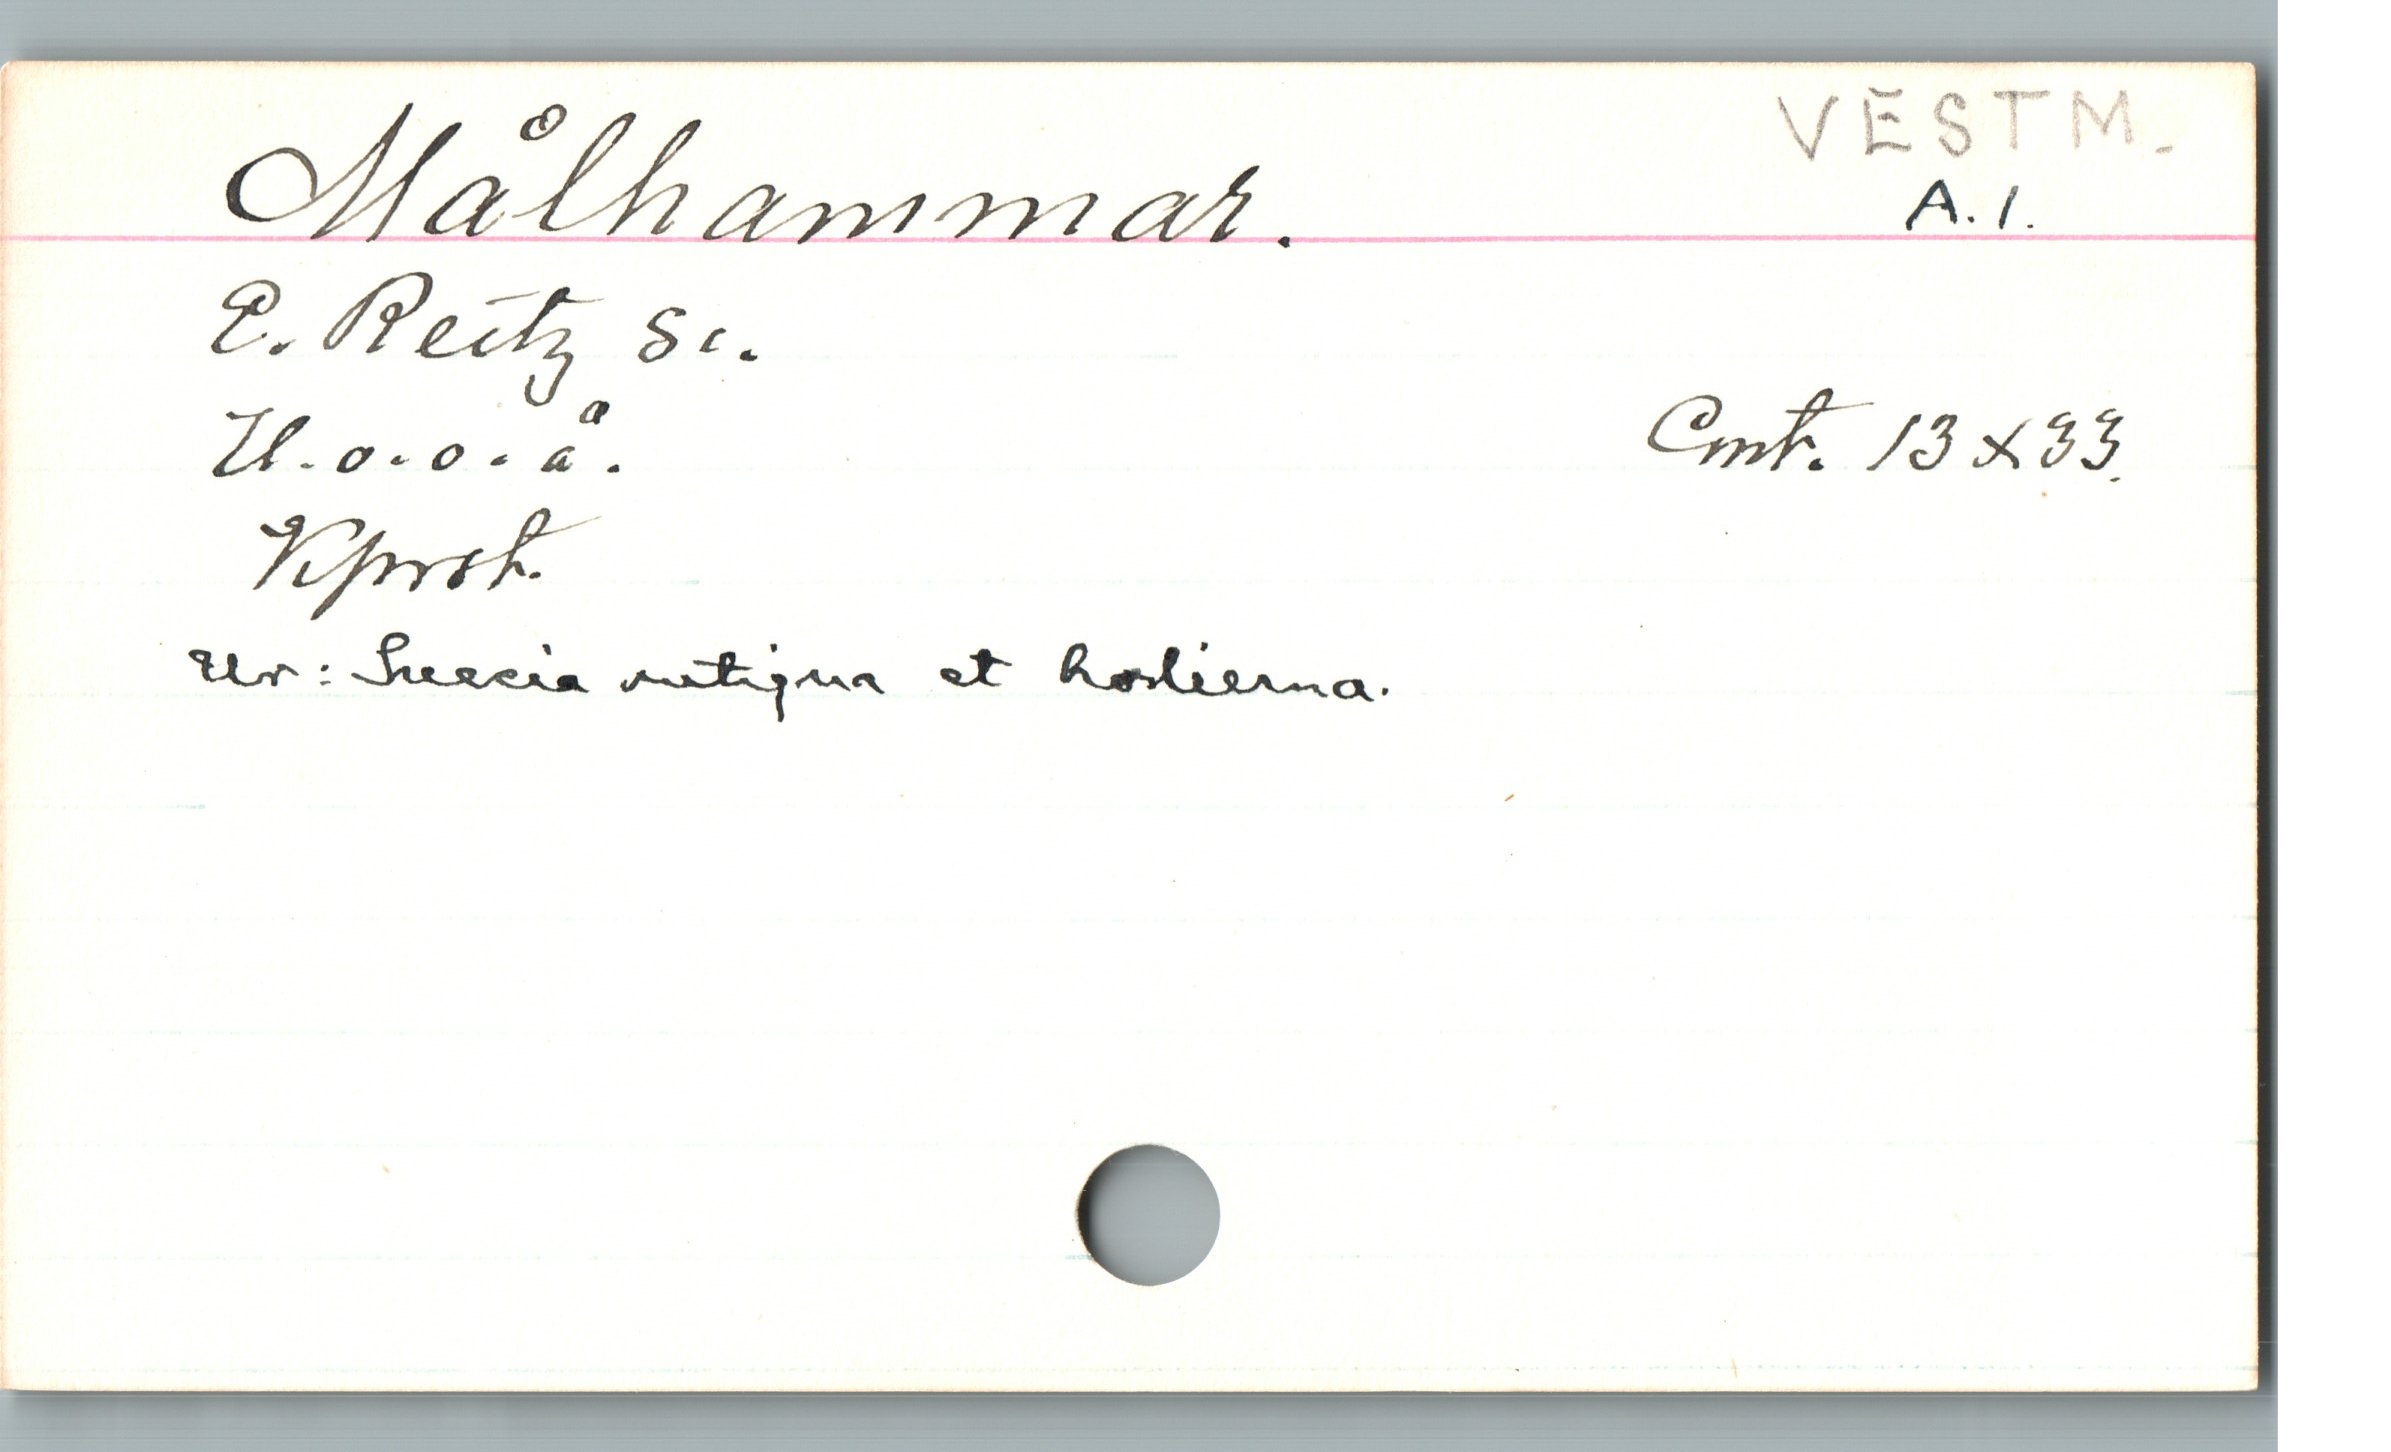 VESTM.
Målhammar. A.1.
E. Reitz sc.
U.o.o.å. Cmt. 13 x 33.
Kprst.
Ur: Suecia antiqua et hodierna.